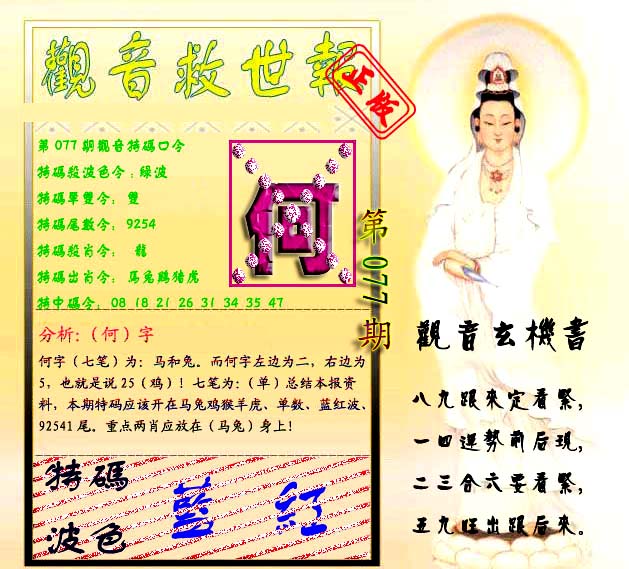 觀音救世報
正版
第077期觀音特碼口令
特碼殺波色令:綠波
特碼單雙令: 雙
特碼尾數令: 9254
特碼殺肖令: 龍
特碼出肖令: 馬兔鷄猪虎
特中碼令: 08 18 21 26 31 34 35 47
何
第077期
分析:(何)字
何字(七笔)为:马和兔。而何字左边为二,右边为
5,也就是说25(鸡)!七笔为:(单)总结本报资
料,本期特码应该开在马兔鸡猴羊虎、单数、蓝红波、
92541尾。重点两肖应放在(马兔)身上!
特碼
波色
藍 紅
觀音玄機書
八九跟來定看緊,
一四運勢前后現,
二三合六要看緊,
五九旺出跟后來。